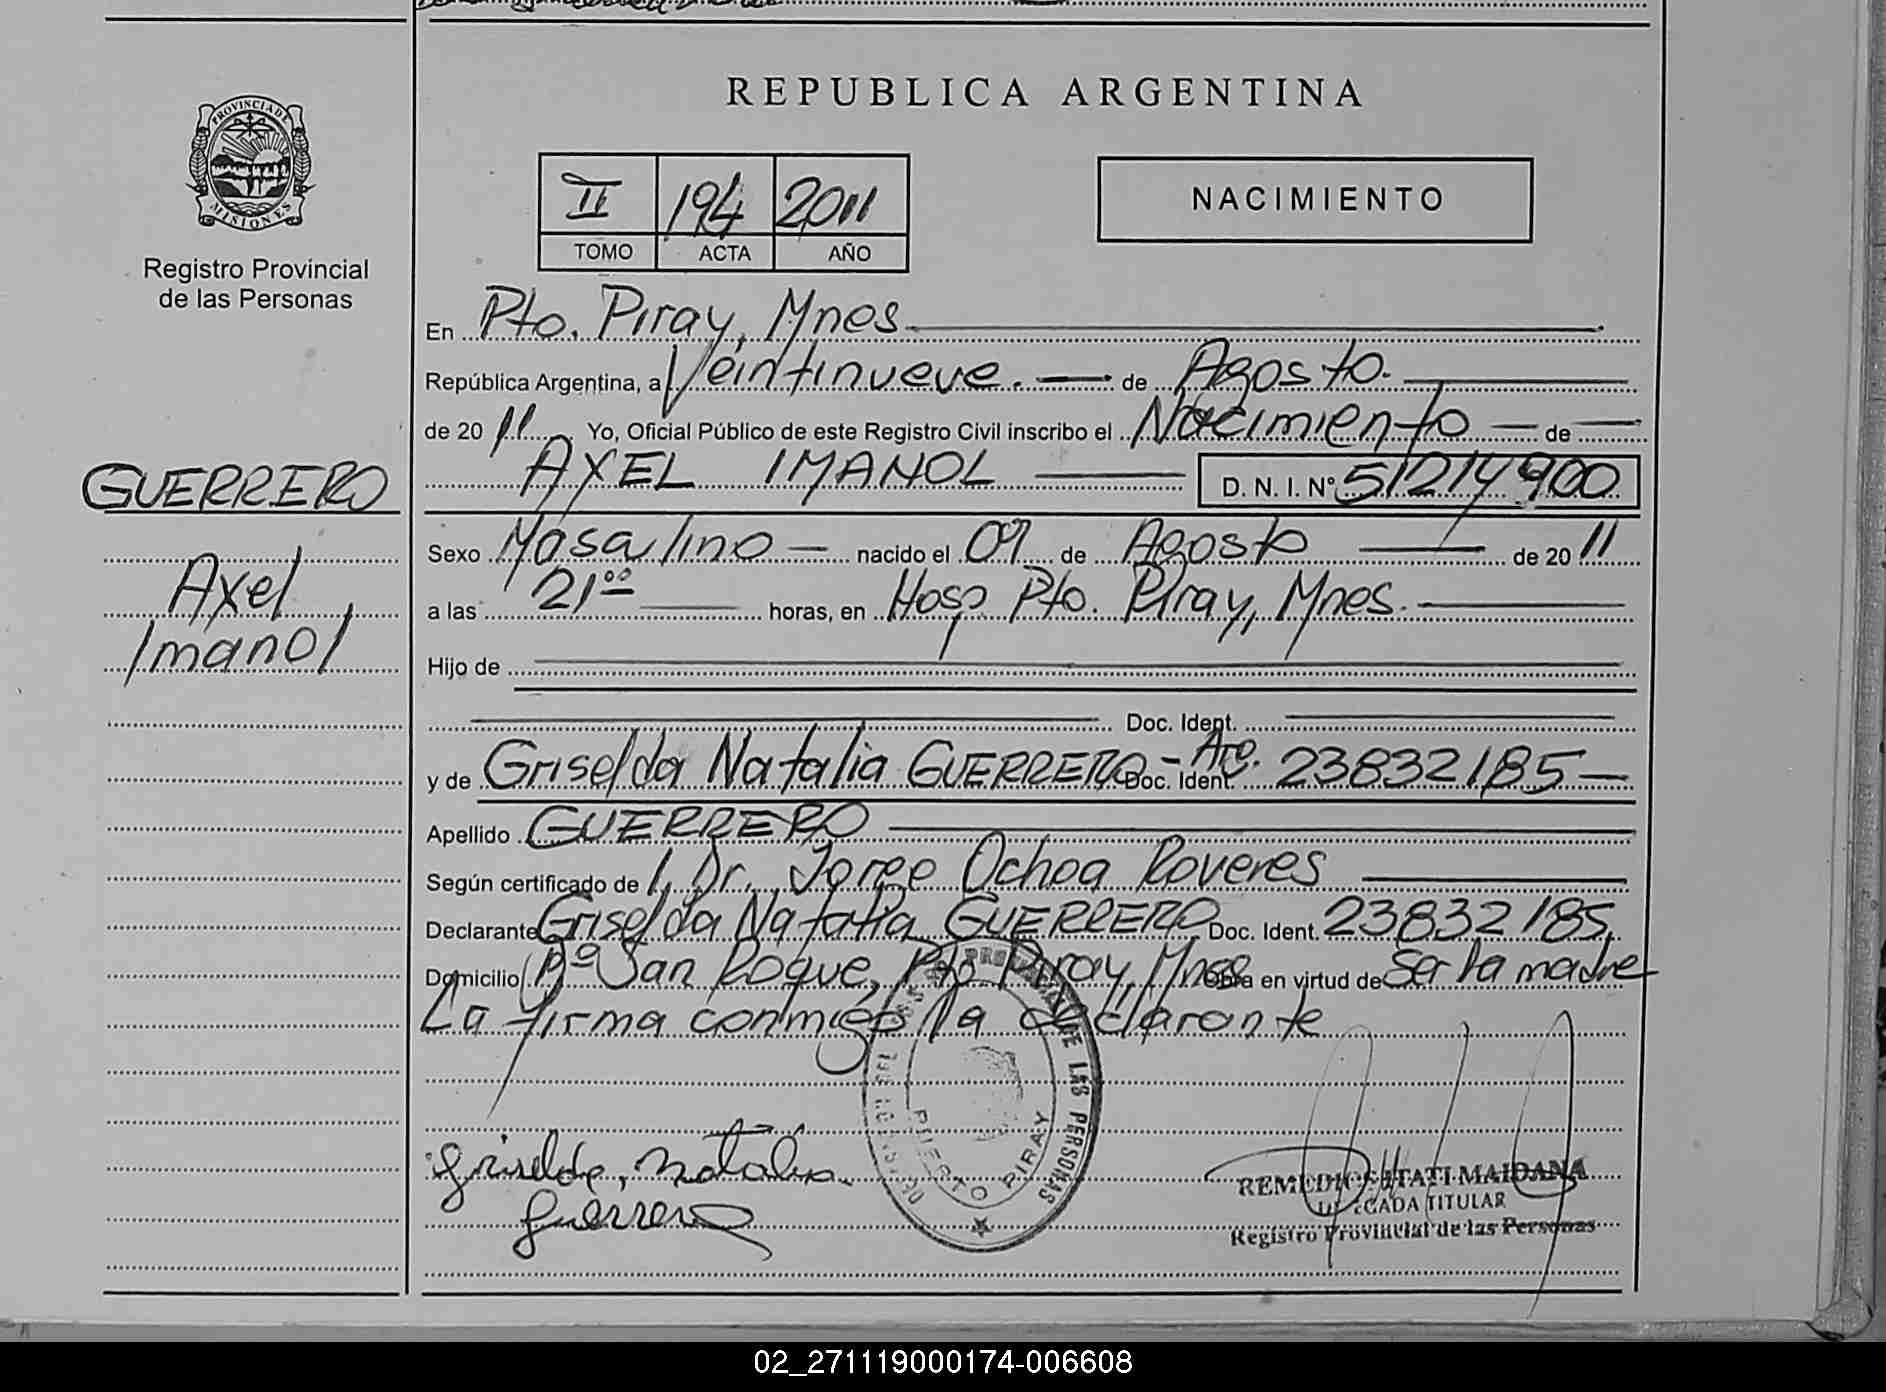 REPUBLICA ARGENTINA
PROVINCIA DE
MISIONES
Registro Provincial
de las Personas
II 194 2011
TOMO ACTA AÑO
NACIMIENTO
En Pto. Piray, Mnes
República Argentina, a Veintinueve. de Agosto.
de 20 11 Yo, Oficial Público de este Registro Civil inscribo el Nacimiento de
AXEL IMANOL D. N. I. Nº 51214900
GUERRERO
Axel
Imanol
Sexo Masculino nacido el 09 de Agosto de 20 11
a las 2100 horas, en Hosp. Pto. Piray, Mnes.
Hijo de
Doc. Ident.
y de Griselda Natalia GUERRERO - Arg. Doc. Ident. 23832185
Apellido GUERRERO
Según certificado de Dr. Jorge Ochoa Roveres
Declarante Griselda Natalia GUERRERO Doc. Ident. 23832185
Domicilio Bº San Roque, Pto Piray, Mnes Obra en virtud de Ser la madre
La firma conmigo la declarante
Griselda, Natalia
Guerrero
DE LAS PERSONAS
PUERTO PIRAY
REMEDIOS ITATI MAIDANA
TITULAR
Registro Provincial de las Personas
02_271119000174-006608